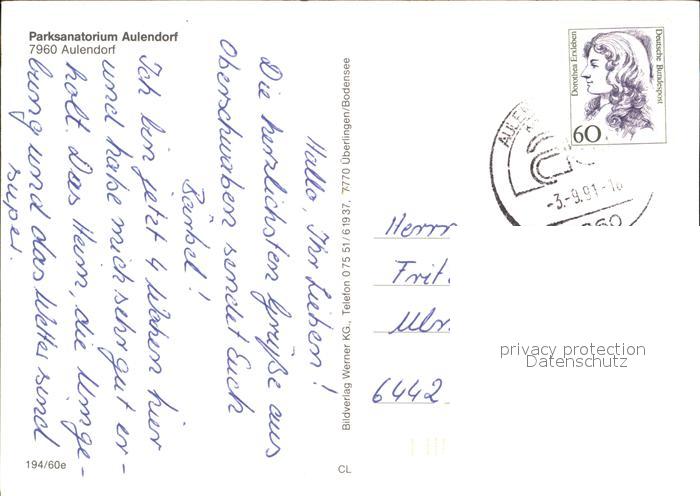 Parksanatorium Aulendorf
7960 Aulendorf
Hallo, Ihr Lieben!
Die herzlichsten Grüße aus
Oberschwaben sendet Euch
Bärbel!
Ich bin jetzt 4 Wochen hier
und habe mich sehr gut er-
holt. Das Heim, die Umge-
bung und das Wetter sind
super.
194/60e
Bildverlag Werner KG., Telefon 0 75 51/6 19 37, 7770 Überlingen/Bodensee
CL
Dorothea Erxleben
Deutsche Bundespost
60
-3.-9.91-18
Herrn
Frit
Ulr
6442
privacy protection
Datenschutz